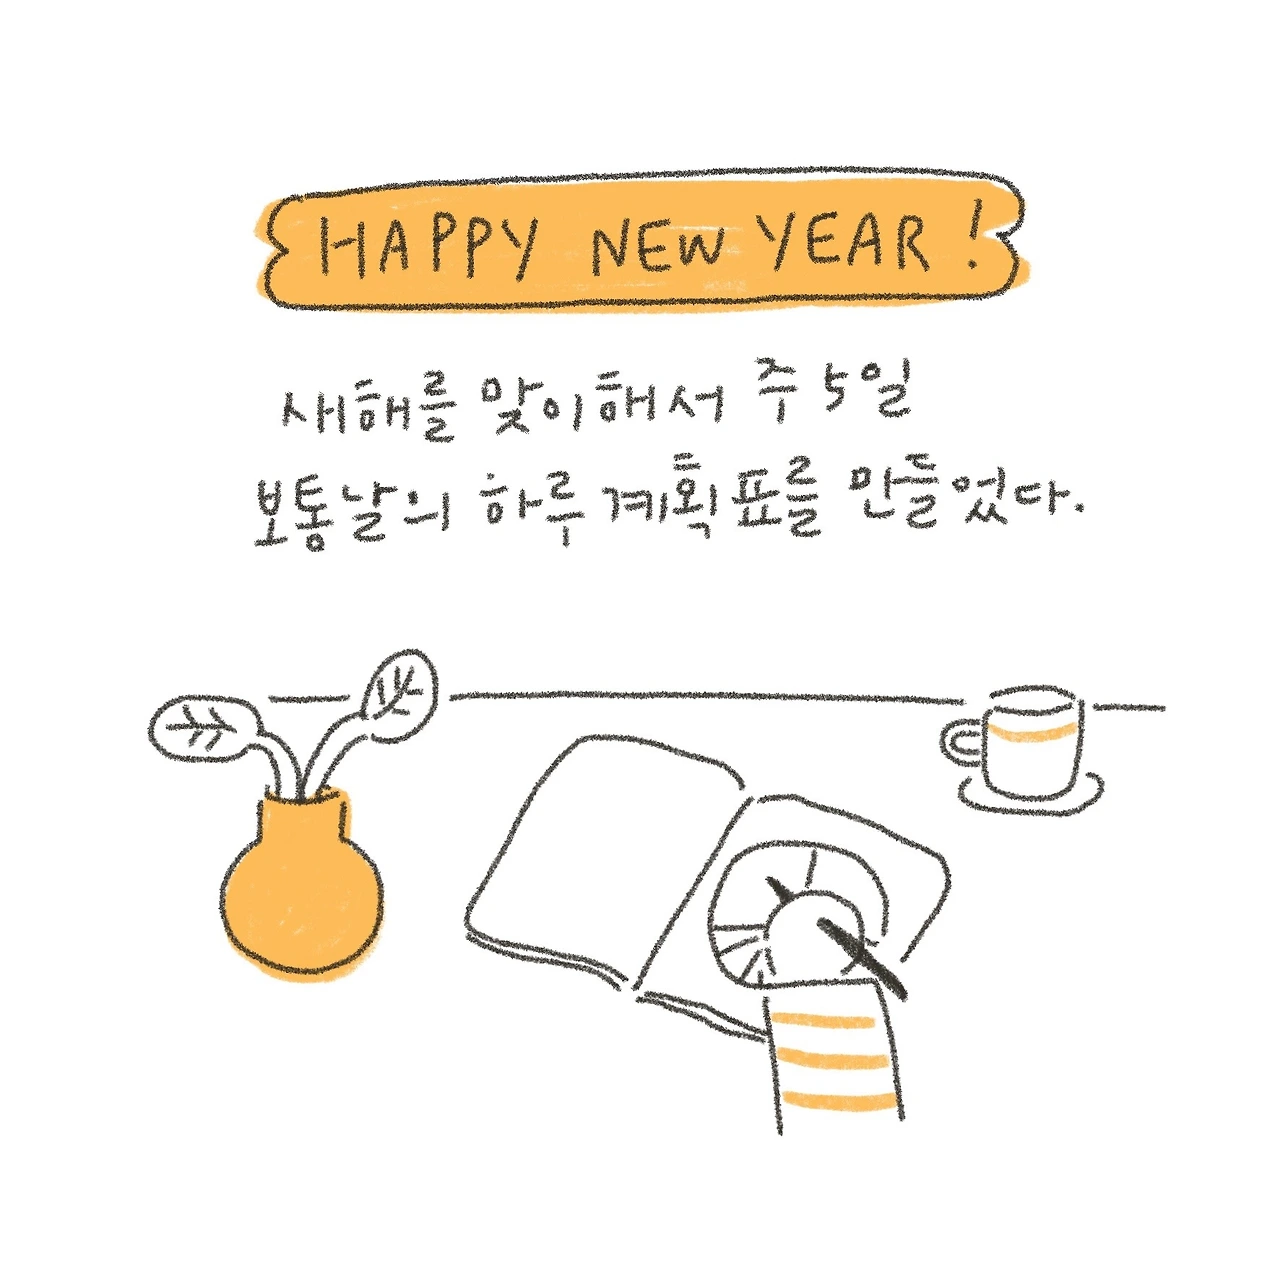 HAPPY NEW YEAR!
새해를 맞이해서 주 5일
보통날의 하루 계획표를 만들었다.